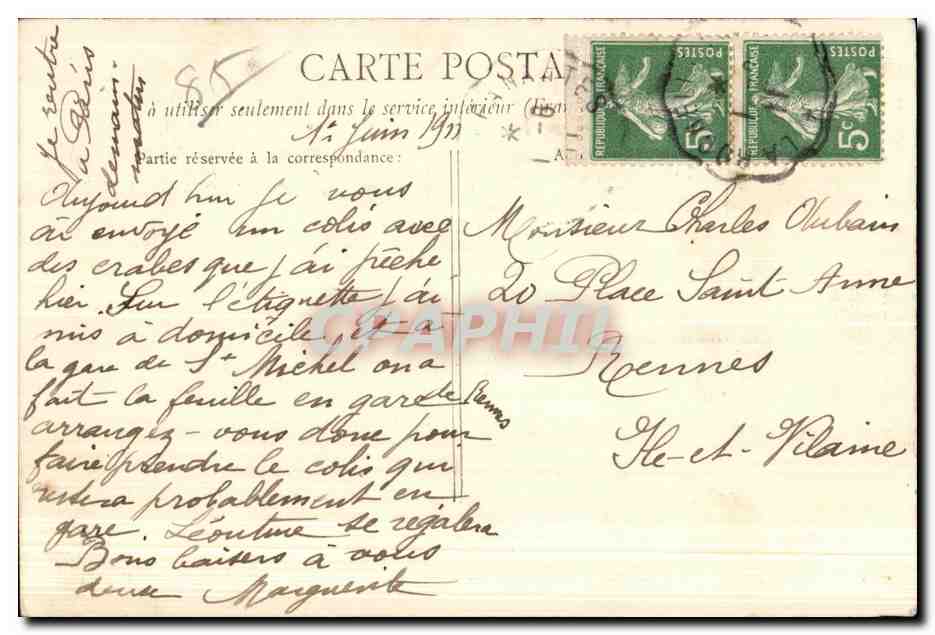 CARTE POSTA
à utiliser seulement dans le service intérieur
1er Juin 1911
Partie réservée à la correspondance :
Aujourd'hui je vous
ai envoyé un colis avec
des crabes que j'ai pêché
hier. Sur l'étiquette j'ai
mis à domicile, et à
la gare de St Michel on a
fait la feuille en gare de Rennes
arrangez-vous donc pour
faire prendre le colis qui
restera probablement en
gare. Léontine se régalera
Bons baisers à vous
deux Marguerite
Je rentre
à Paris
demain
matin
85
Monsieur Charles
20 Place Saint Anne
Rennes
Ile-et-Vilaine
REPUBLIQUE FRANÇAISE
POSTES
5c
REPUBLIQUE FRANÇAISE
POSTES
5c
CPAPHIL